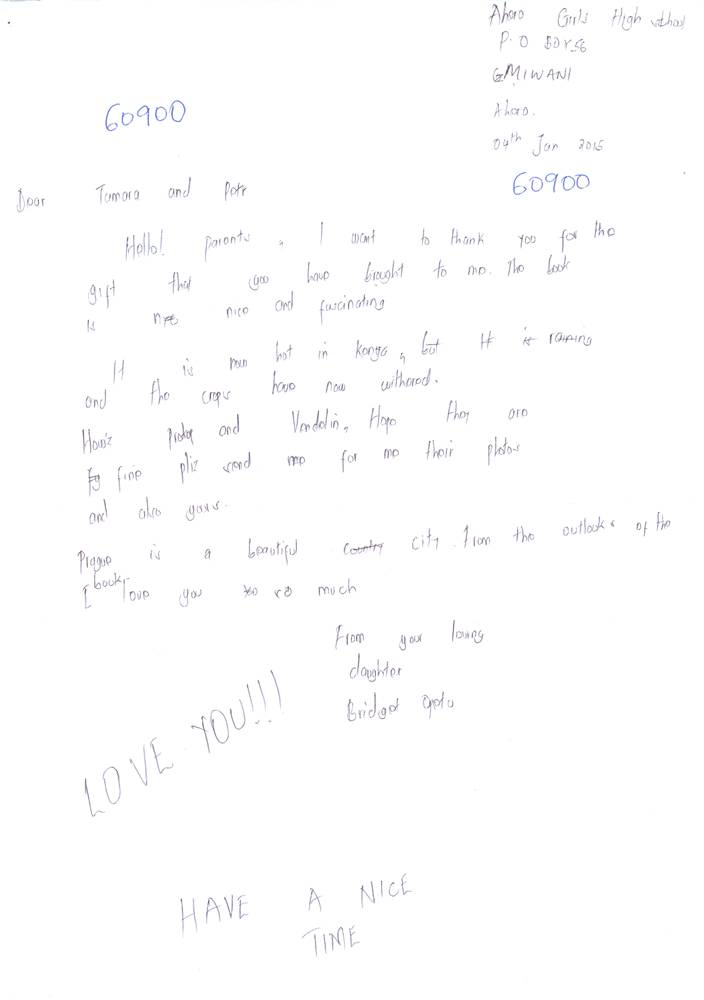 Ahero Girls High school
P.O BOX 56
MIWANI
Ahero.
04th Jan 2015
60900
60900
Dear Tamara and Petr
Hello! parents, I want to thank you for the
gift that you have brought to me. The book
is nice and fascinating
It is hot in Kenya, but it is raining
and the crops have now withered.
How'z and Vendelin, Hope they are
fine pliz send me for me their photos
and also yours.
Prague is a beautiful country city from the outlooks of the
book,
I love you so much
From your loving
daughter
Bridget
LOVE YOU!!!
HAVE A NICE
TIME